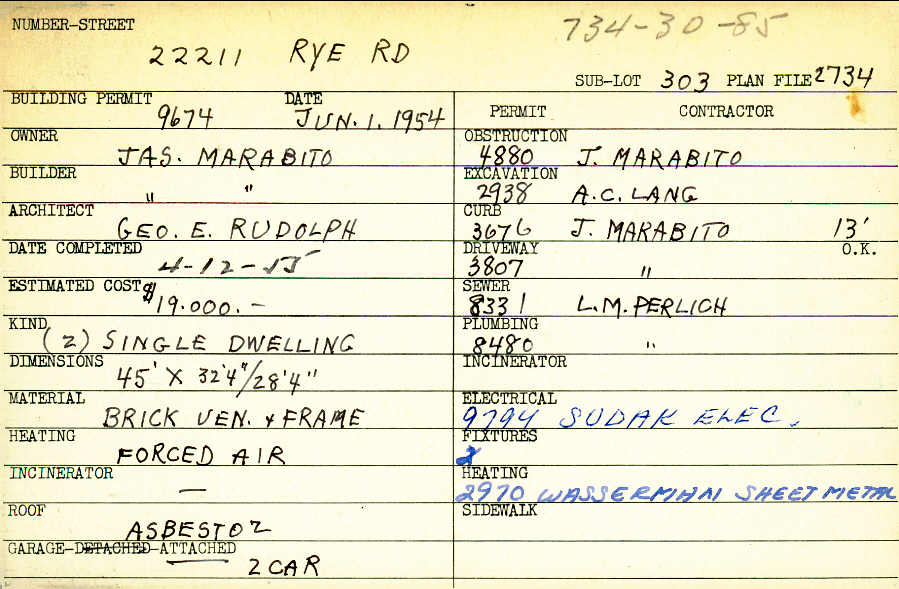 NUMBER-STREET
734-30-85
22211 RYE RD
SUB-LOT 303 PLAN FILE 2734
BUILDING PERMIT DATE
9674 JUN. 1. 1954
OWNER
JAS. MARABITO
BUILDER
" "
ARCHITECT
GEO. E. RUDOLPH
DATE COMPLETED
4-12-55
ESTIMATED COST $19.000.-
KIND
(2) SINGLE DWELLING
DIMENSIONS
45' X 32'4"/28'4"
MATERIAL
BRICK VEN. + FRAME
HEATING
FORCED AIR
INCINERATOR
—
ROOF
ASBESTOZ
GARAGE-DETACHED-ATTACHED
2 CAR
PERMIT CONTRACTOR
OBSTRUCTION
4880 J. MARABITO
EXCAVATION
2938 A.C. LANG
CURB
3676 J. MARABITO 13'
DRIVEWAY O.K.
3807 "
SEWER
8331 L.M. PERLICH
PLUMBING
8480 "
INCINERATOR
ELECTRICAL
9794 SUDAK ELEC.
FIXTURES
2
HEATING
2970 WASSERMAN SHEET METAL
SIDEWALK